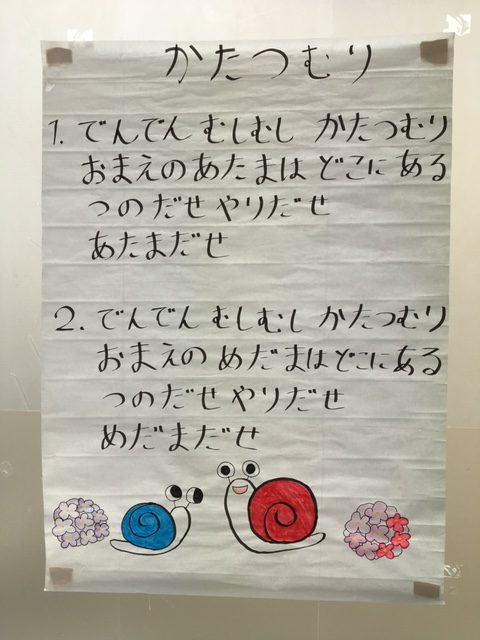 かたつむり
1. でんでん むしむし かたつむり
おまえのあたまは どこにある
つのだせ やりだせ
あたまだせ
2. でんでん むしむし かたつむり
おまえの めだまは どこにある
つのだせ やりだせ
めだまだせ